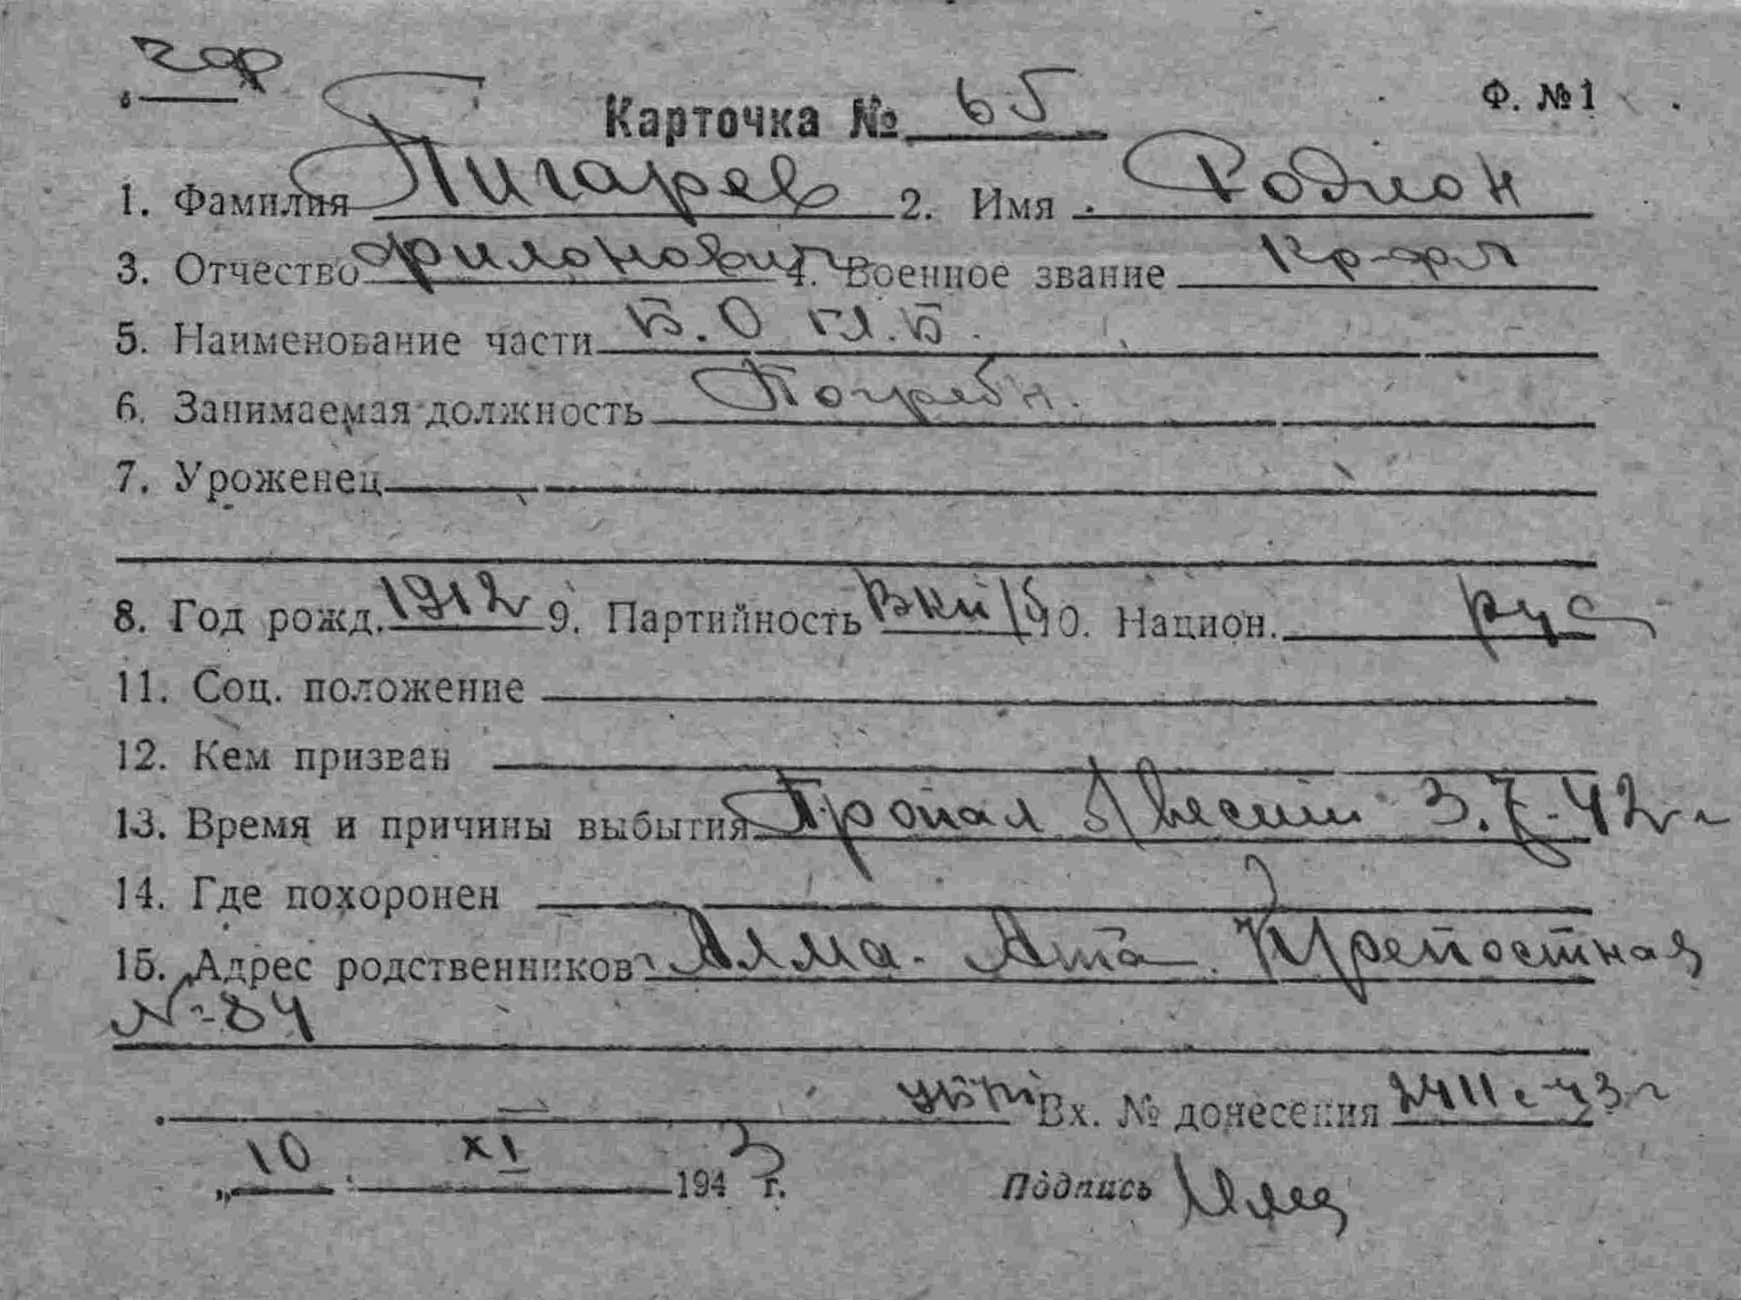 чф
Карточка № 65 Ф. №1
1. Фамилия Пигарев 2. Имя Родион
3. Отчество Филонович 4. Военное звание Кр-фл
5. Наименование части Б.О гл.Б.
6. Занимаемая должность Погребн.
7. Уроженец
8. Год рожд. 1912 9. Партийность ВКП/б 10. Национ. рус
11. Соц. положение
12. Кем призван
13. Время и причины выбытия Пропал б/вести 3.7.42 г
14. Где похоронен
15. Адрес родственников Алма-Ата. Крепостная
№-84
Вх. № донесения 2411с-43 г
„10 XI 1943 г. Подпись